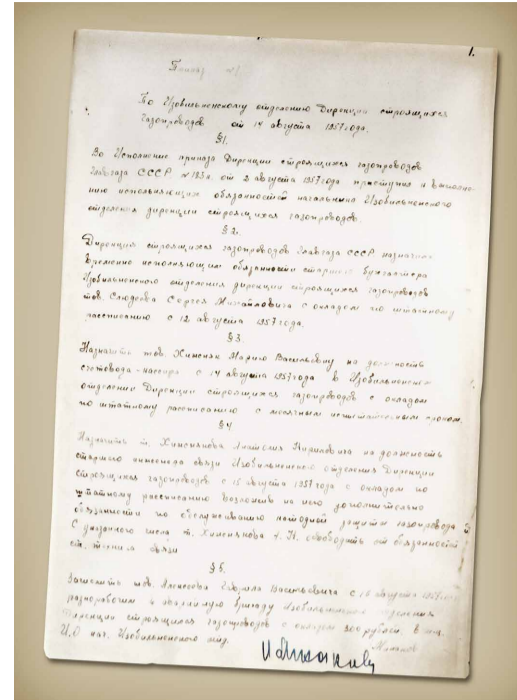 1.
Приказ №1
По Изобильненскому отделению Дирекции строящихся
газопроводов от 14 августа 1957 года.
§1.
Во исполнение приказа Дирекции строящихся газопроводов
Главгаза СССР №185к от 2 августа 1957 года приступил к выполне-
нию исполняющих обязанностей начальника Изобильненского
отделения дирекции строящихся газопроводов.
§2.
Дирекция строящихся газопроводов Главгаза СССР назначить
временно исполняющим обязанности старшего бухгалтера
Изобильненского отделения дирекции строящихся газопроводов
тов. Сергея Михайловича с окладом по штатному
рассписанию с 12 августа 1957 года.
§3.
Назначить тов. Марию Васильевну на должность
счетовода-кассира с 14 августа 1957 года в Изобильненское
отделении Дирекции строящихся газопроводов с окладом
по штатному рассписанию с месячным испытательным сроком.
§4
Назначить т. Анатолия Кириловича на должность
старшего инженера связи Изобильненского отделения Дирекции
строящихся газопроводов с 15 августа 1957 года с окладом по
штатному рассписанию возложив на него дополнительно
обязанности по обслуживанию катодной защиты газопровода и
С указанного числа т. освободить от обязанностей
ст. техника связи
§5.
Зачислить тов. Алексеева Васильевича с 16 августа
разнорабочим в аварийную бригаду Изобильненского отделения
Дирекции строящихся газопроводов с окладом 300 рублей. в м-ц.
И.О нач. Изобильненского отд.